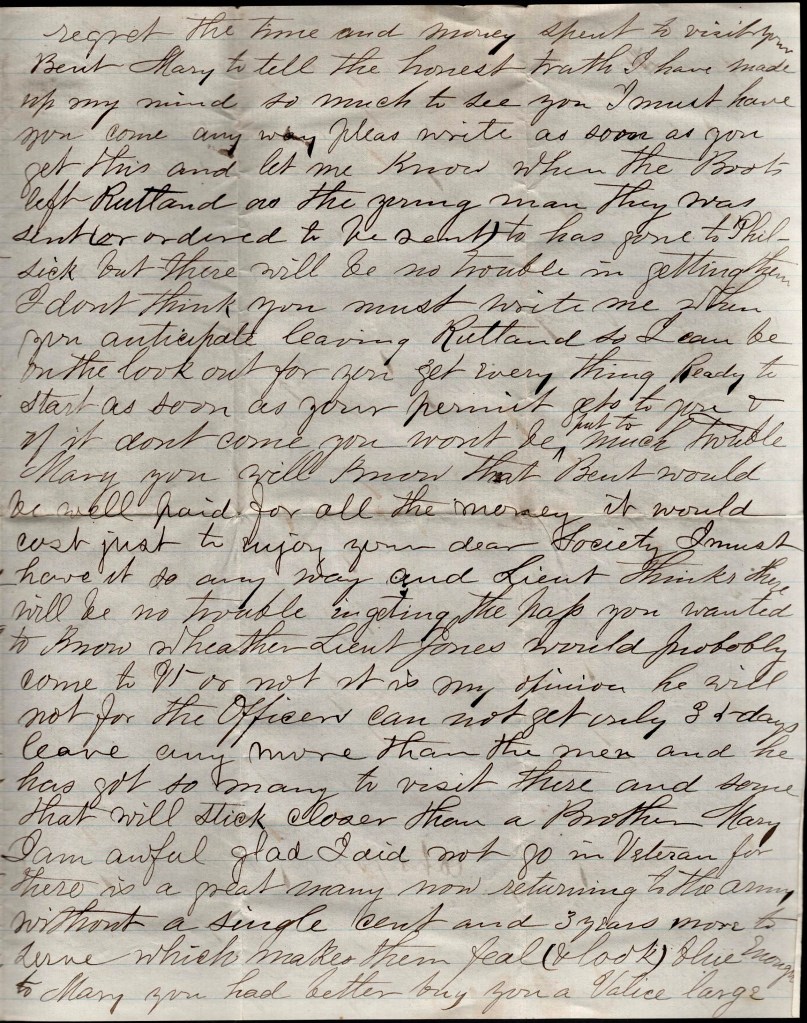 regret the time and money spent to visit your
Bent Mary to tell the honest truth I have made
up my mind so much to see you I must have
you come any way pleas write as soon as you
get this and let me know when the Boots
left Rutland as the young man they was
sent (or ordered to be sent) to has gone to Phil-
sick but there will be no trouble in getting them
I dont think you must write me when
you anticipate leaving Rutland so I can be
on the look out for you get every thing Ready to
start as soon as your permit gets to you &
if it dont come you wont be put to much trouble
Mary you will know that Bent would
be well paid for all the money it would
cost just to enjoy your dear Society I must
have it so any way and Lieut thinks there
will be no trouble in geting the pass you wanted
to know wheather Lieut Jones would probobly
come to Vt or not it is my opinion he will
not for the Officers can not get only 35 days
leave any more than the men and he
has got so many to visit there and some
that will stick closer than a Brother Mary
I am awful glad I did not go in Veteran for
there is a great many now returning to the army
without a single cent and 3 years more to
serve which makes them feal (& look) blue Enough
to Mary you had better buy you a Valice large